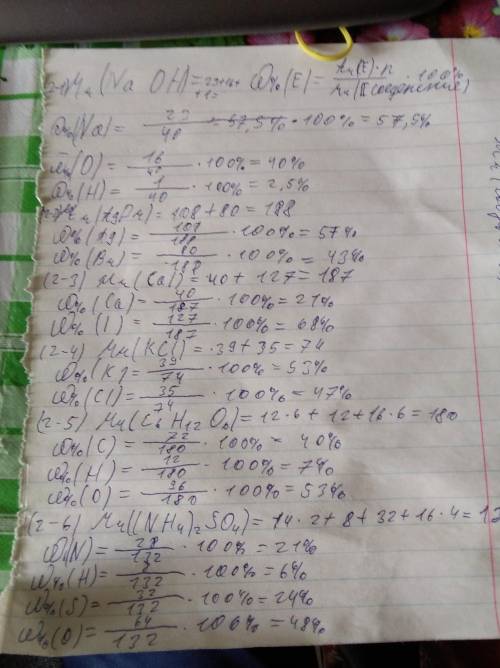 (2-1) Mr(Na OH)=23+16+ ω%(E)= Ar(E)·n / Mr(соединение) ·100%
+1=
ω%(Na)= 23/40 = 57,5% ·100%=57,5%
ω%(O)= 16/40 ·100%=40%
ω%(H)= 1/40 ·100%=2,5%
=108+80=188
ω%(Ag)= 108/188 ·100%=57%
ω%(Br)= 80/188 ·100%=43%
(2-3) Mr(CaI)=40+127=187
ω%(Ca)= 40/187 ·100%=21%
ω%(I)= 127/187 ·100%=68%
(2-4) Mr(KCl)=39+35=74
ω%(K)= 39/74 ·100%=53%
ω%(Cl)= 35/74 ·100%=47%
(2-5) Mr(C6H12O6)=12·6+12+16·6=180
ω%(C)= 72/180 ·100%=40%
ω%(H)= 12/180 ·100%=7%
ω%(O)= 96/180 ·100%=53%
(2-6) Mr((NH4)2SO4)=14·2+8+32+16·4=
ω%(N)= 28/132 ·100%=21%
ω%(H)= 8/132 ·100%=6%
ω%(S)= 32/132 ·100%=24%
ω%(O)= 64/132 ·100%=48%